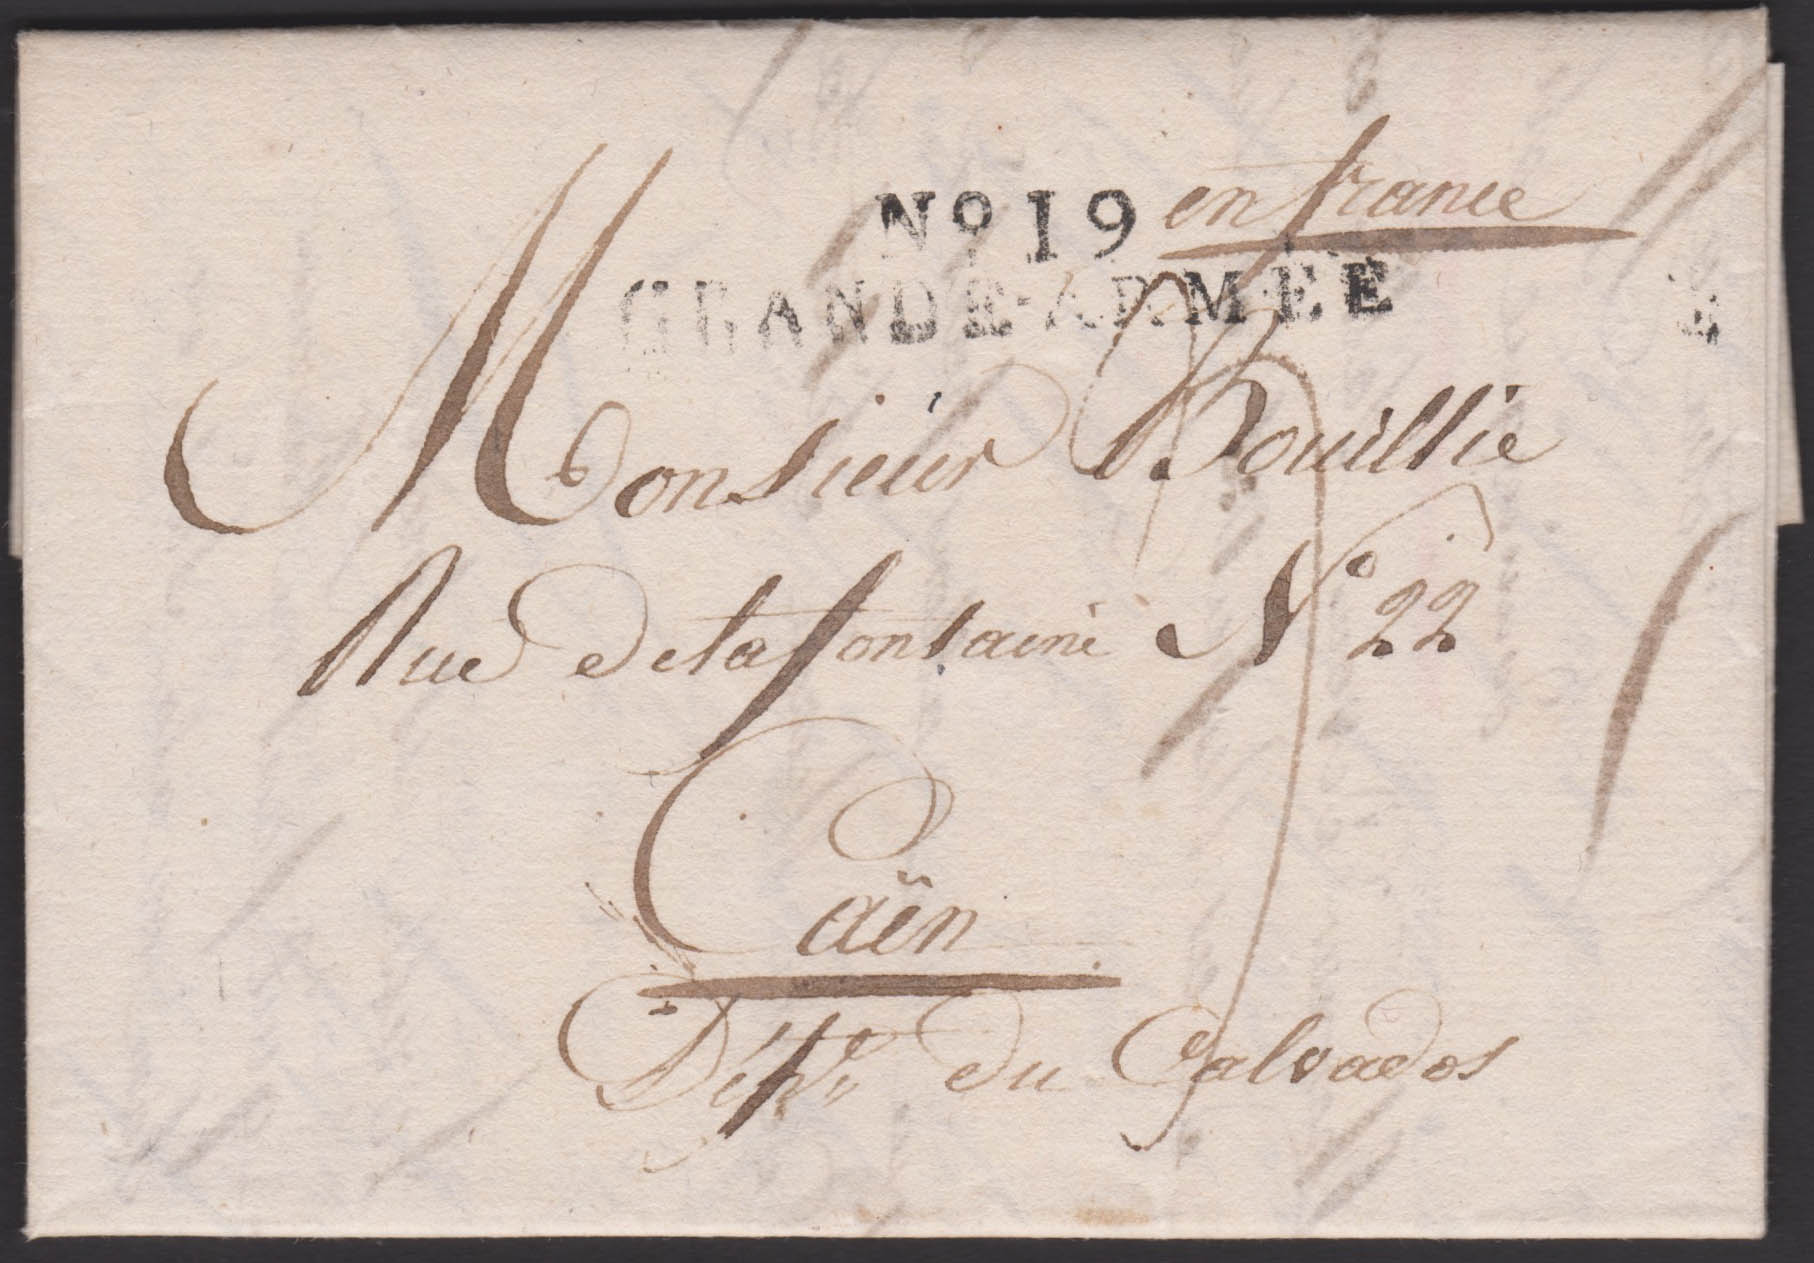 No 19 en france
GRANDE-ARMÉE
Monsieur Bouillie
Rue de la fontaine No 22
Caën
Dépt. du Calvados